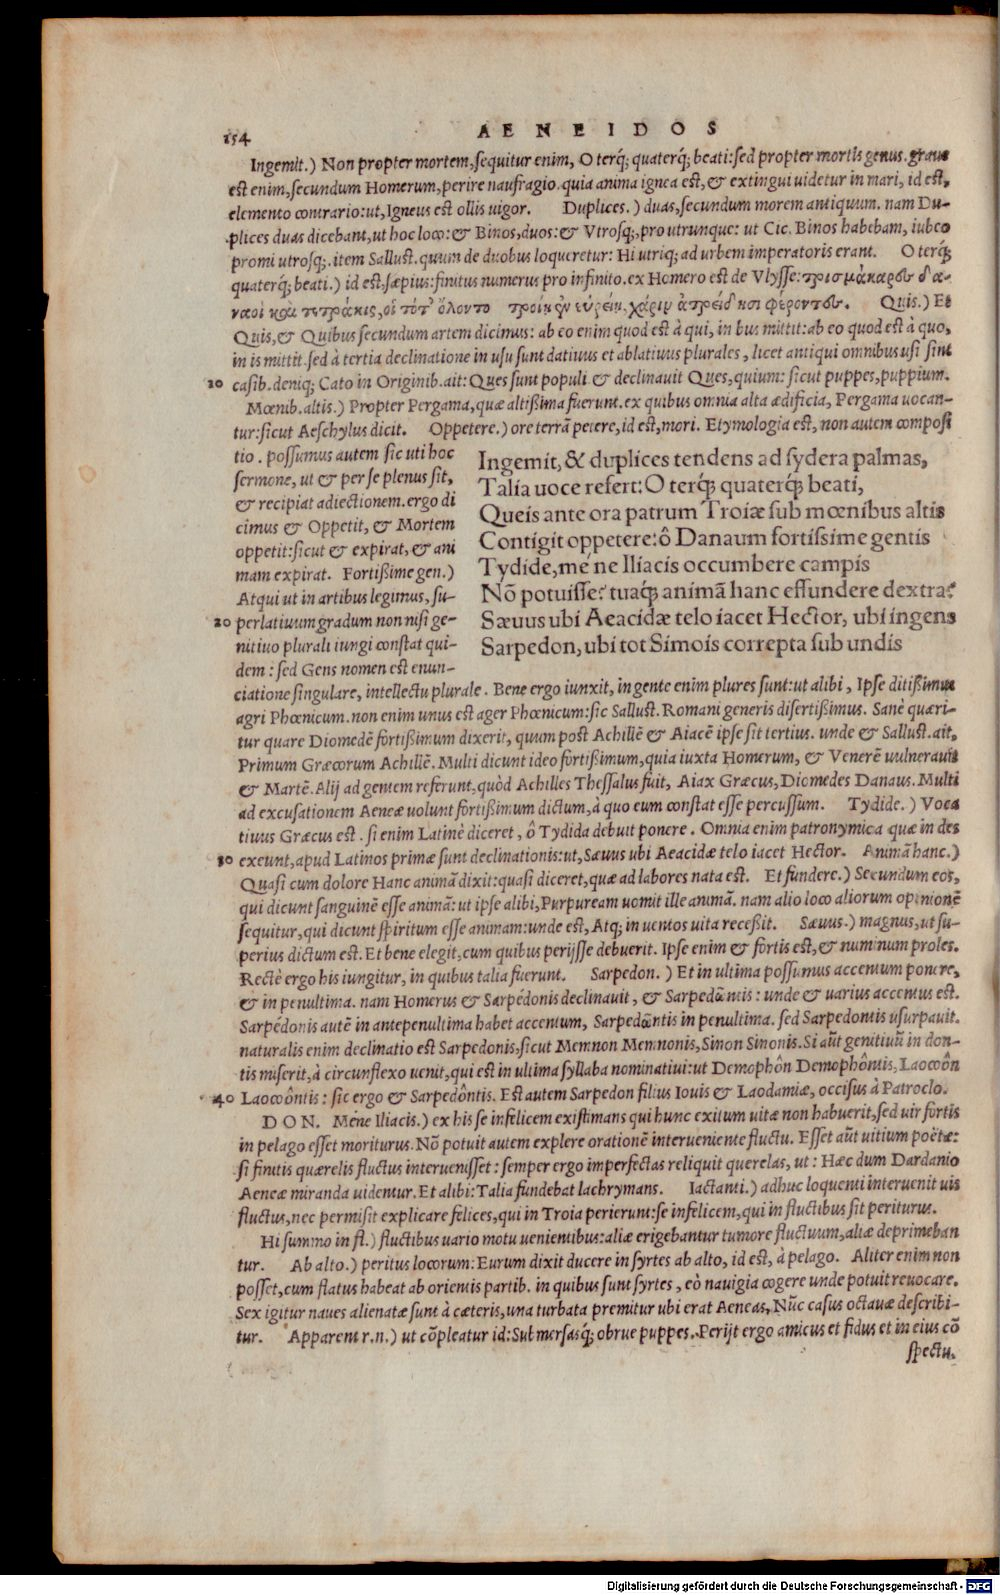 154 AENEIDOS
Ingemit.) Non propter mortem, sequitur enim, O terq́; quaterq́; beati: sed propter mortis genus. graue
est enim, secundum Homerum, perire naufragio. quia anima ignea est, & extingui uidetur in mari, id est,
elemento contrario: ut, Igneus est ollis uigor. Duplices.) duas, secundum morem antiquum. nam Du-
plices duas dicebant, ut hoc loco: & Binos, duos: & Vtrosq;, pro utrunque: ut Cic. Binos habebam, iubeo
promi utrosq;. item Sallust. quum de duobus loqueretur: Hi utriq; ad urbem imperatoris erant. O terq́;
quaterq́; beati.) id est, sæpius: finitus numerus pro infinito. ex Homero est de Vlysse: τρισμάκαρες δα-
ναοὶ καὶ τετράκις, οἳ τότ' ὄλοντο τροίῃ ἐν εὐρείῃ, χάριν ἀτρείδῃσι φέροντες. Quis.) Et
Quis, & Quibus secundum artem dicimus: ab eo enim quod est à qui, in bus mittit: ab eo quod est à quo,
in is mittit. sed à tertia declinatione in usu sunt datiuus et ablatiuus plurales, licet antiqui omnibus usi sint
10 casib. deniq; Cato in Originib. ait: Ques sunt populi. & declinauit Ques, quium: sicut puppes, puppium.
Mœnib. altis.) Propter Pergama, quæ altißima fuerunt. ex quibus omnia alta ædificia, Pergama uocan-
tur: sicut Aeschylus dicit. Oppetere.) ore terrã petere, id est, mori. Etymologia est, non autem composi
tio. possumus autem sic uti hoc
sermone, ut & per se plenus sit,
& recipiat adiectionem. ergo di
cimus & Oppetit, & Mortem
oppetit: sicut & expirat, & ani
mam expirat. Fortißime gen.)
Atqui ut in artibus legimus, su-
20 perlatiuum gradum non nisi ge-
nitiuo plurali iungi constat qui-
dem: sed Gens nomen est enun-
Ingemit, & duplices tendens ad sydera palmas,
Talia uoce refert: O terq́; quaterq́; beati,
Queis ante ora patrum Troiæ sub mœnibus altis
Contigit oppetere: ô Danaum fortissime gentis
Tydide, me´ne Iliacis occumbere campis
Nõ potuisse? tuaq́; animã hanc effundere dextra?
Sæuus ubi Aeacidæ telo iacet Hector, ubi ingens
Sarpedon, ubi tot Simois correpta sub undis
ciatione singulare, intellectu plurale. Bene ergo iunxit, in gente enim plures sunt: ut alibi, Ipse ditißimus
agri Phœnicum. non enim unus est ager Phœnicum: sic Sallust. Romani generis disertißimus. Sanè quæri-
tur quare Diomedẽ fortißimum dixerit, quum post Achillẽ & Aiacẽ ipse sit tertius. unde & Sallust. ait,
Primum Græcorum Achillẽ. Multi dicunt ideo fortißimum, quia iuxta Homerum, & Venerẽ uulnerauit
& Martẽ. Alij ad gentem referunt, quòd Achilles Thessalus fuit, Aiax Græcus, Diomedes Danaus. Multi
ad excusationem Aeneæ uolunt fortißimum dictum, à quo eum constat esse percussum. Tydide.) Voca
tiuus Græcus est. si enim Latinè diceret, ô Tydida debuit ponere. Omnia enim patronymica quæ in des
30 exeunt, apud Latinos primæ sunt declinationis: ut, Sæuus ubi Aeacidæ telo iacet Hector. Animã hanc.)
Quasi cum dolore Hanc animã dixit: quasi diceret, quæ ad labores nata est. Et fundere.) Secundum eos,
qui dicunt sanguinẽ esse animã: ut ipse alibi, Purpuream uomit ille animã. nam alio loco aliorum opinionẽ
sequitur, qui dicunt spiritum esse animam: unde est, Atq; in uentos uita receßit. Sæuus.) magnus, ut su-
perius dictum est. Et bene elegit, cum quibus perijsse debuerit. Ipse enim & fortis est, & numinum proles.
Rectè ergo his iungitur, in quibus talia fuerunt. Sarpedon.) Et in ultima possumus accentum ponere,
& in penultima. nam Homerus & Sarpédonis declinauit, & Sarpedõntis: unde & uarius accentus est.
Sarpédonis autẽ in antepenultima habet accentum, Sarpedõntis in penultima. sed Sarpedontis usurpauit.
naturalis enim declinatio est Sarpedonis, sicut Memnon Memnonis, Sinon Sinonis. Si aũt genitiuũ in don-
tis miserit, à circunflexo uenit, qui est in ultima syllaba nominatiui: ut Demophôn Demophôntis, Laocoôn
40 Laocoôntis: sic ergo & Sarpedôntis. Est autem Sarpedon filius Iouis & Laodamiæ, occisus à Patroclo.
DON. Méne Iliacis.) ex his se infelicem existimans qui hunc exitum uitæ non habuerit, sed uir fortis
in pelago esset moriturus. Nõ potuit autem explere orationẽ interueniente fluctu. Esset aũt uitium poëtæ:
si finitis quærelis fluctus interuenisset: semper ergo imperfectas reliquit querelas, ut: Hæc dum Dardanio
Aeneæ miranda uidentur. Et alibi: Talia fundebat lachrymans. Iactanti.) adhuc loquenti interuenit uis
fluctus, nec permisit explicare felices, qui in Troia perierunt: se infelicem, qui in fluctibus sit periturus.
Hi summo in fl.) fluctibus uario motu uenientibus: aliæ erigebantur tumore fluctuum, aliæ deprimeban
tur. Ab alto.) peritus locorum: Eurum dixit ducere in syrtes ab alto, id est, à pelago. Aliter enim non
posset, cum flatus habeat ab orientis partib. in quibus sunt syrtes, eò nauigia cogere unde potuit reuocare.
Sex igitur naues alienatæ sunt à cæteris, una turbata premitur ubi erat Aeneas. Nũc casus octauæ describi-
tur. Apparent r.n.) ut cõpleatur id: Submersasq́; obrue puppes. Perijt ergo amicus et fidus et in eius cõ
spectu.
Digitalisierung gefördert durch die Deutsche Forschungsgemeinschaft - DFG